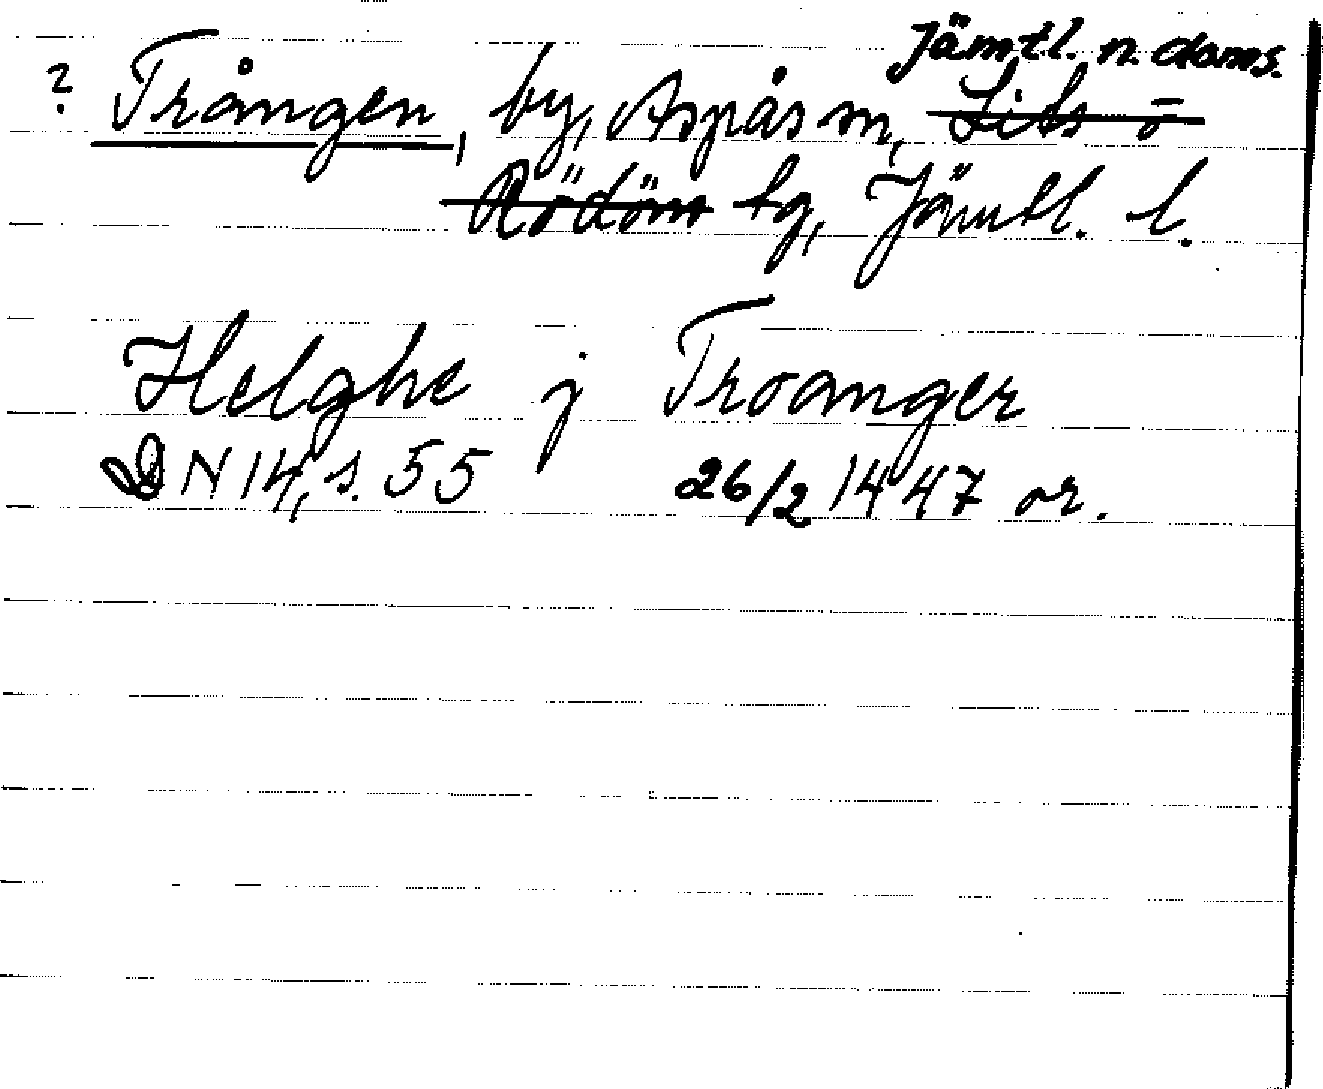 Jämtl. n. doms.
? Trången, by, Aspås sn, Lits o
Rödöns tg, Jämtl. l.
Helghe j Troanger
DN 14, s. 55 26/2 1447 or.